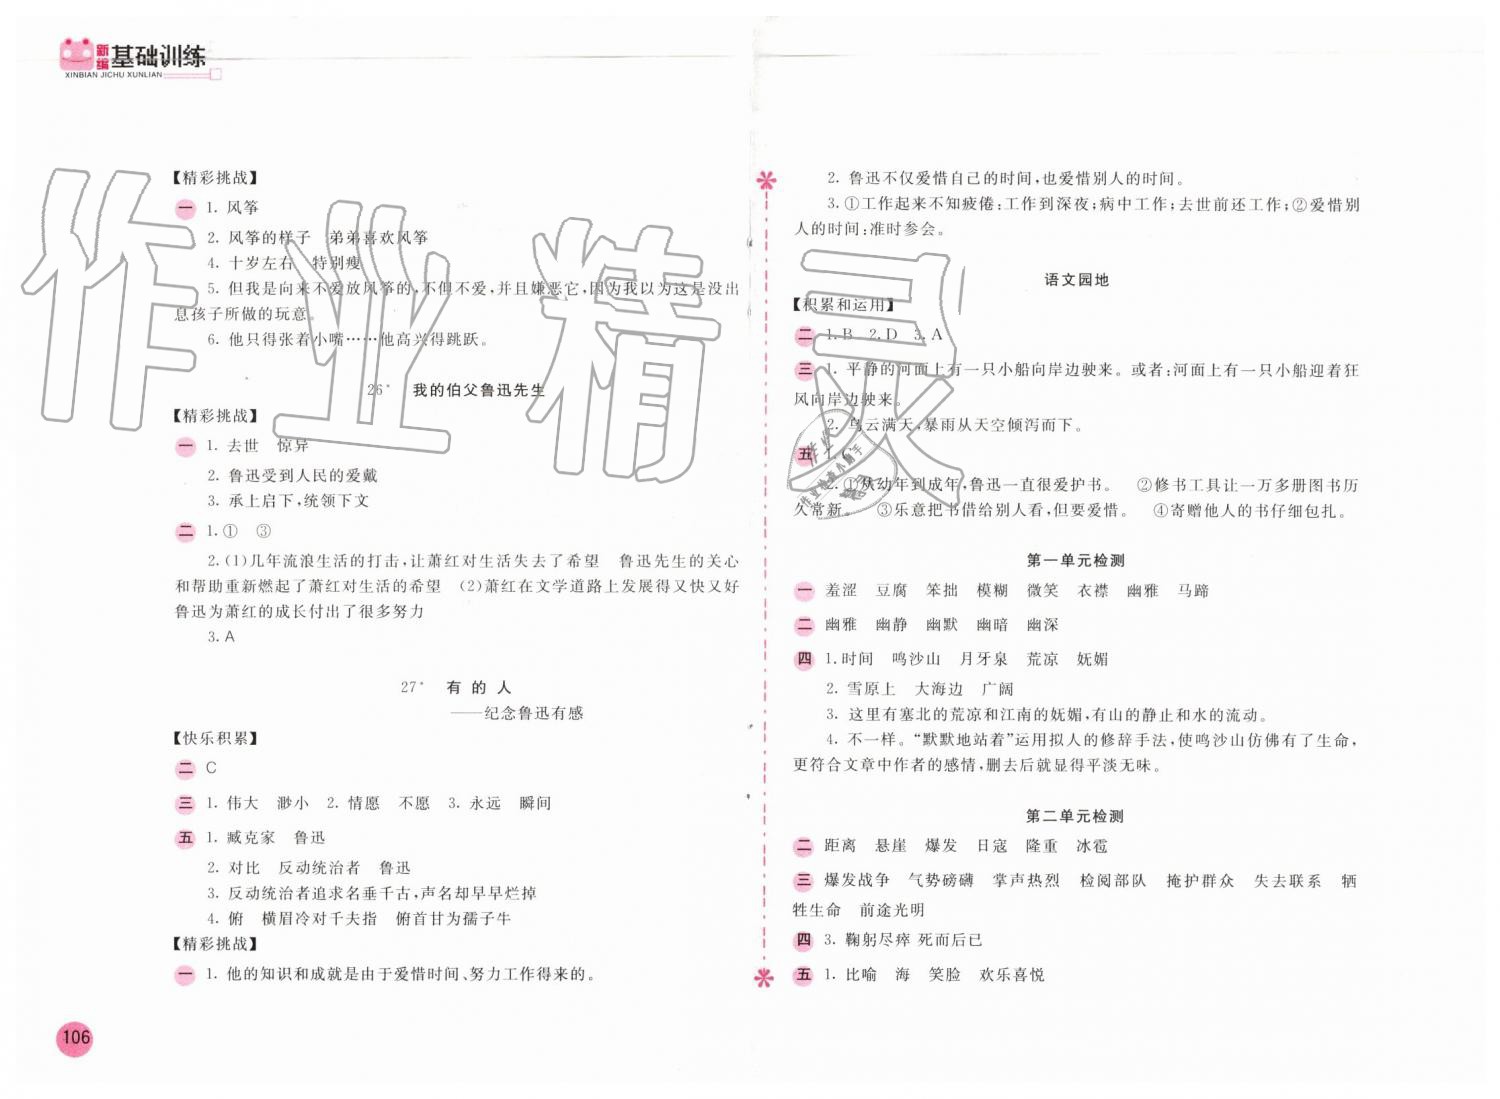 新编基础训练
XINBIAN JICHU XUNLIAN
【精彩挑战】
一 1. 风筝
2. 风筝的样子 弟弟喜欢风筝
4. 十岁左右 特别瘦
5. 但我是向来不爱放风筝的,不但不爱,并且嫌恶它,因为我以为这是没出
息孩子所做的玩意。
6. 他只得张着小嘴……他高兴得跳跃。
26* 我的伯父鲁迅先生
【精彩挑战】
一 1. 去世 惊异
2. 鲁迅受到人民的爱戴
3. 承上启下,统领下文
二 1. ① ③
2. (1)几年流浪生活的打击,让萧红对生活失去了希望 鲁迅先生的关心
和帮助重新燃起了萧红对生活的希望 (2)萧红在文学道路上发展得又快又好
鲁迅为萧红的成长付出了很多努力
3. A
27* 有的人
——纪念鲁迅有感
【快乐积累】
二 C
三 1. 伟大 渺小 2. 情愿 不愿 3. 永远 瞬间
五 1. 臧克家 鲁迅
2. 对比 反动统治者 鲁迅
3. 反动统治者追求名垂千古,声名却早早烂掉
4. 俯 横眉冷对千夫指 俯首甘为孺子牛
【精彩挑战】
一 1. 他的知识和成就是由于爱惜时间、努力工作得来的。
106
2. 鲁迅不仅爱惜自己的时间,也爱惜别人的时间。
3. ①工作起来不知疲倦;工作到深夜;病中工作;去世前还工作;②爱惜别
人的时间;准时参会。
语文园地
【积累和运用】
二 1. B 2. D 3. A
三 1. 平静的河面上有一只小船向岸边驶来。或者:河面上有一只小船迎着狂
风向岸边驶来。
2. 乌云满天,暴雨从天空倾泻而下。
五 1. C
2. ①从幼年到成年,鲁迅一直很爱护书。 ②修书工具让一万多册图书历
久常新。 ③乐意把书借给别人看,但要爱惜。 ④寄赠他人的书仔细包扎。
第一单元检测
一 羞涩 豆腐 笨拙 模糊 微笑 衣襟 幽雅 马蹄
二 幽雅 幽静 幽默 幽暗 幽深
四 1. 时间 鸣沙山 月牙泉 荒凉 妩媚
2. 雪原上 大海边 广阔
3. 这里有塞北的荒凉和江南的妩媚,有山的静止和水的流动。
4. 不一样。“默默地站着”运用拟人的修辞手法,使鸣沙山仿佛有了生命,
更符合文章中作者的感情,删去后就显得平淡无味。
第二单元检测
二 距离 悬崖 爆发 日寇 隆重 冰雹
三 爆发战争 气势磅礴 掌声热烈 检阅部队 掩护群众 失去联系 牺
牲生命 前途光明
四 3. 鞠躬尽瘁 死而后已
五 1. 比喻 海 笑脸 欢乐喜悦
作业精灵